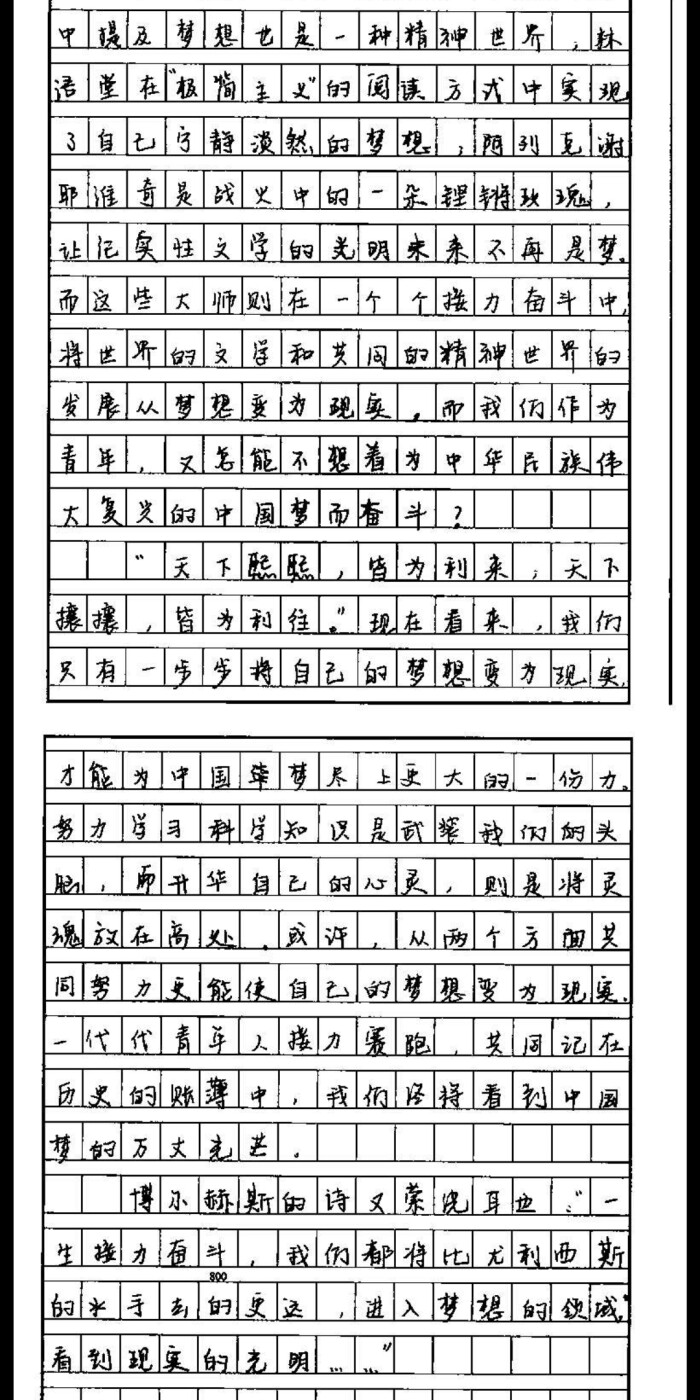 中提及梦想也是一种精神世界，林
语堂在“极简主义”的阅读方式中实现
了自己宁静淡然的梦想，阿列克谢
耶维奇是战火中的一朵铿锵玫瑰，
让纪实性文学的光明未来不再是梦。
而这些大师则在一个个接力奋斗中，
将世界的文学和共同的精神世界的
发展从梦想变为现实。而我们作为
青年，又怎能不想着为中华民族伟
大复兴的中国梦而奋斗？
“天下熙熙，皆为利来，天下
攘攘，皆为利往。”现在看来，我们
只有一步步将自己的梦想变为现实，
才能为中国梦尽上更大的一份力。
努力学习科学知识是武装我们的头
脑，而升华自己的心灵，则是将灵
魂放在高处。或许，从两个方面共
同努力更能使自己的梦想变为现实。
一代代青年人接力赛跑，共同记在
历史的账薄中，我们终将看到中国
梦的万丈光芒。
博尔赫斯的诗又萦绕耳边：“一
生接力奋斗，我们都将比尤利西斯
800
的水手去的更远，进入梦想的领域，
看到现实的光明……”